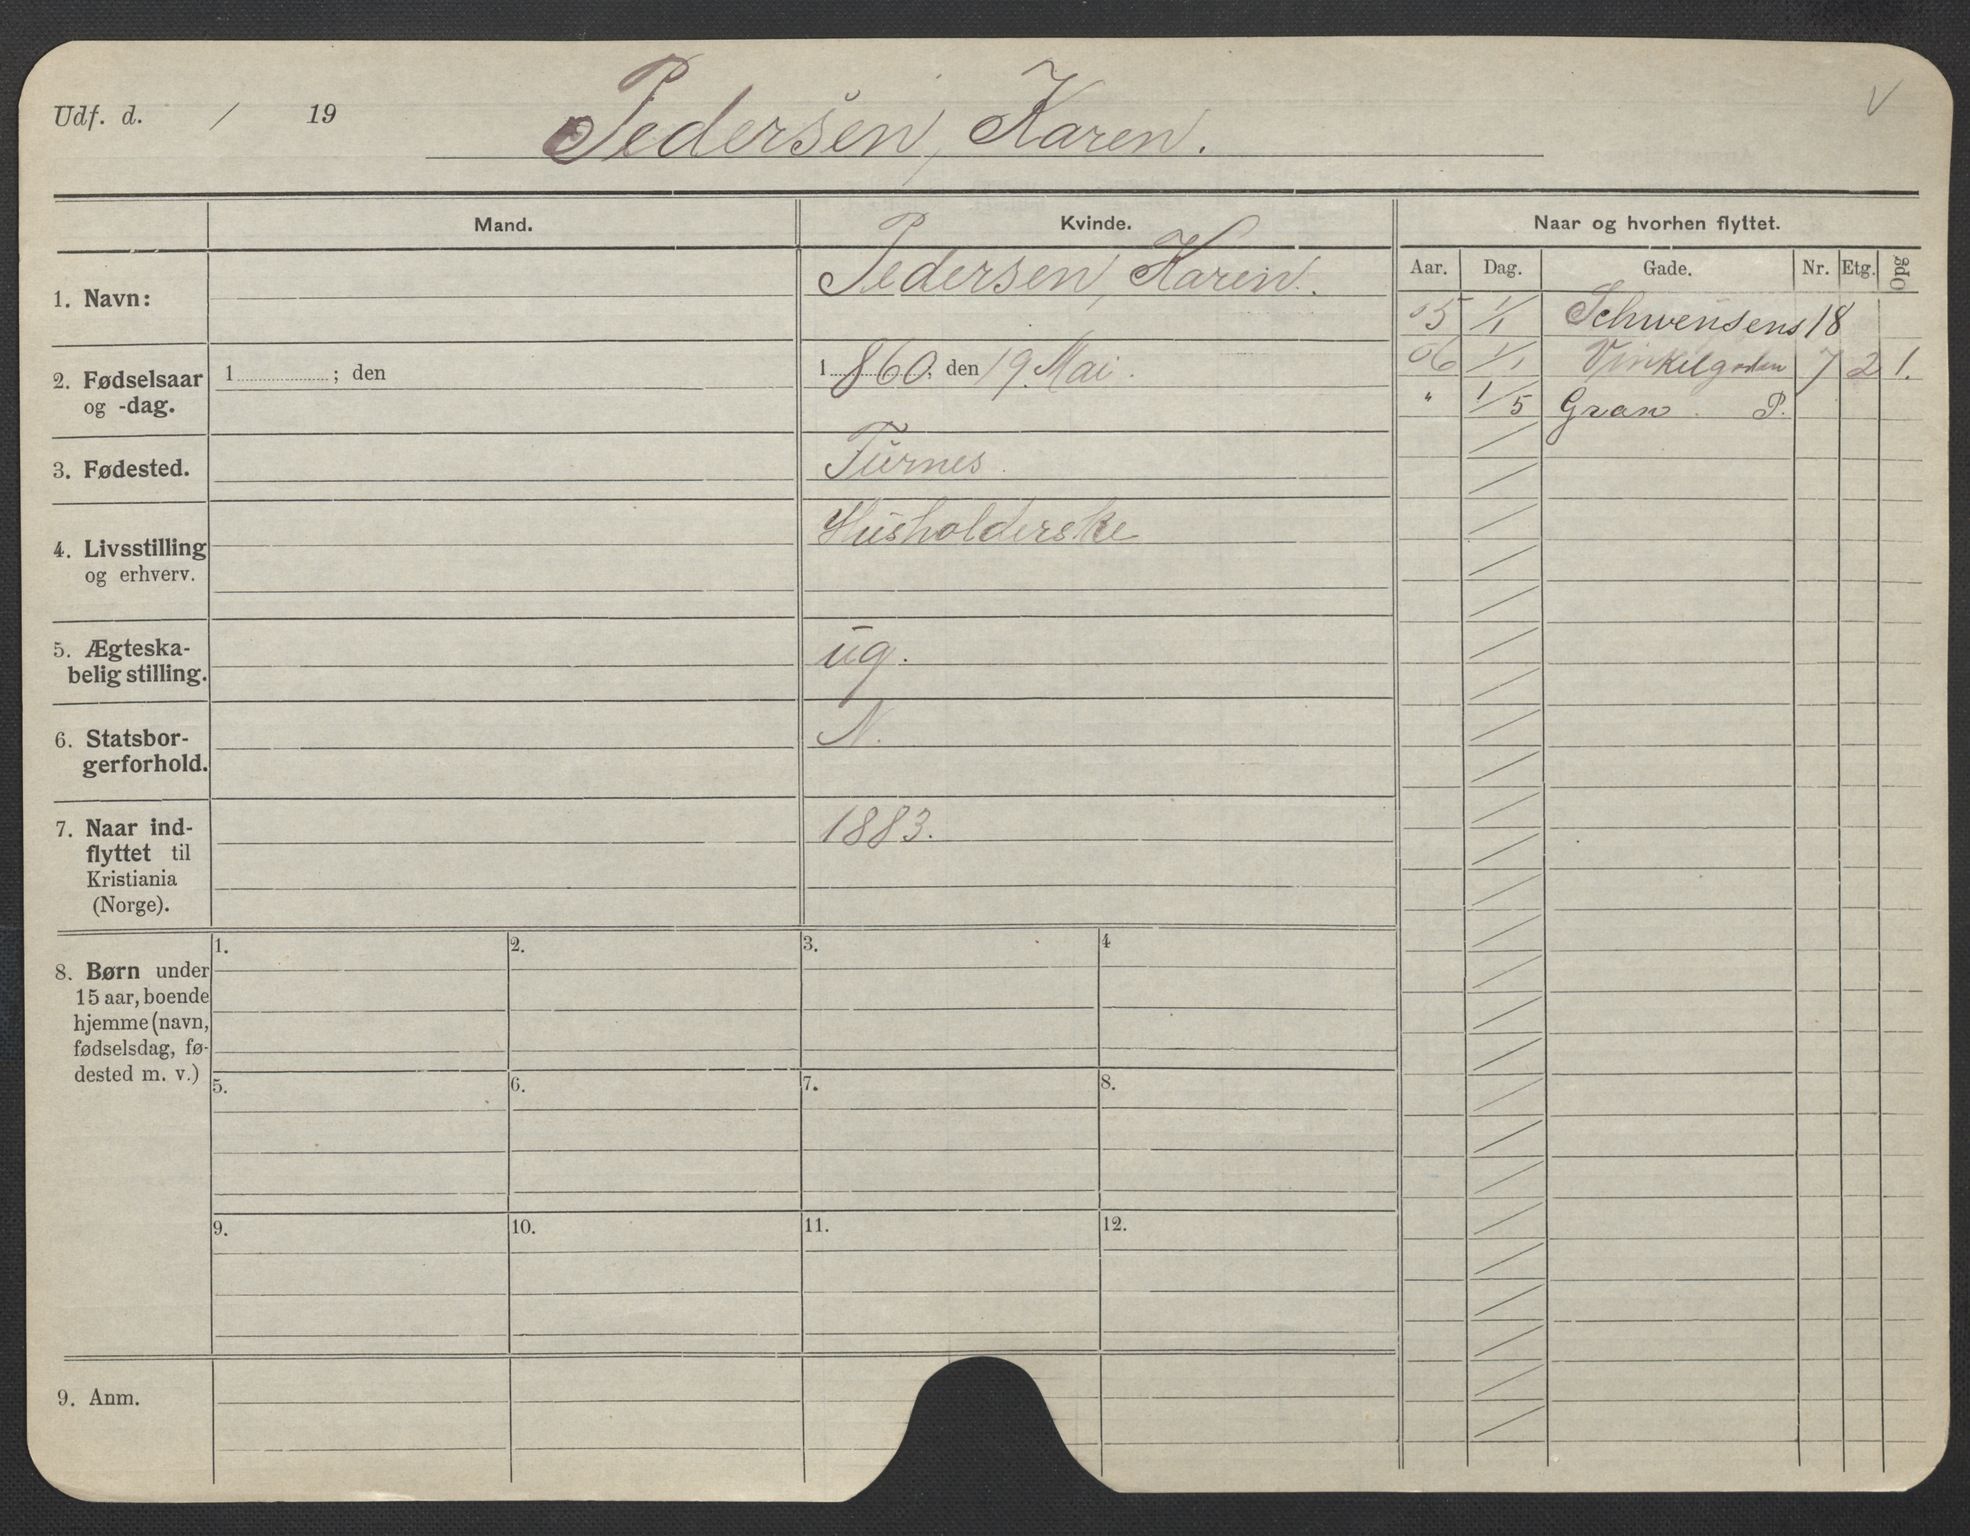 Udf. d. / 19
Pedersen, Karen.
V
Mand.
Kvinde.
Naar og hvorhen flyttet.
Aar. Dag. Gade. Nr. Etg. Opg
1. Navn:
Pedersen, Karen.
2. Fødselsaar
og -dag.
1 ; den
1860; den 19 Mai.
3. Fødested.
Furnes.
4. Livsstilling
og erhverv.
Husholderske
5. Ægteska-
belig stilling.
ug.
6. Statsbor-
gerforhold.
N.
7. Naar ind-
flyttet til
Kristiania
(Norge).
1883.
05 1/1 Schwensens 18
06 1/1 Vinkelgaden 7 2 1.
" 1/5 Gran. P.
8. Børn under
15 aar, boende
hjemme (navn,
fødselsdag, fø-
dested m. v.)
1. 2. 3. 4
5. 6. 7. 8.
9. 10. 11. 12.
9. Anm.